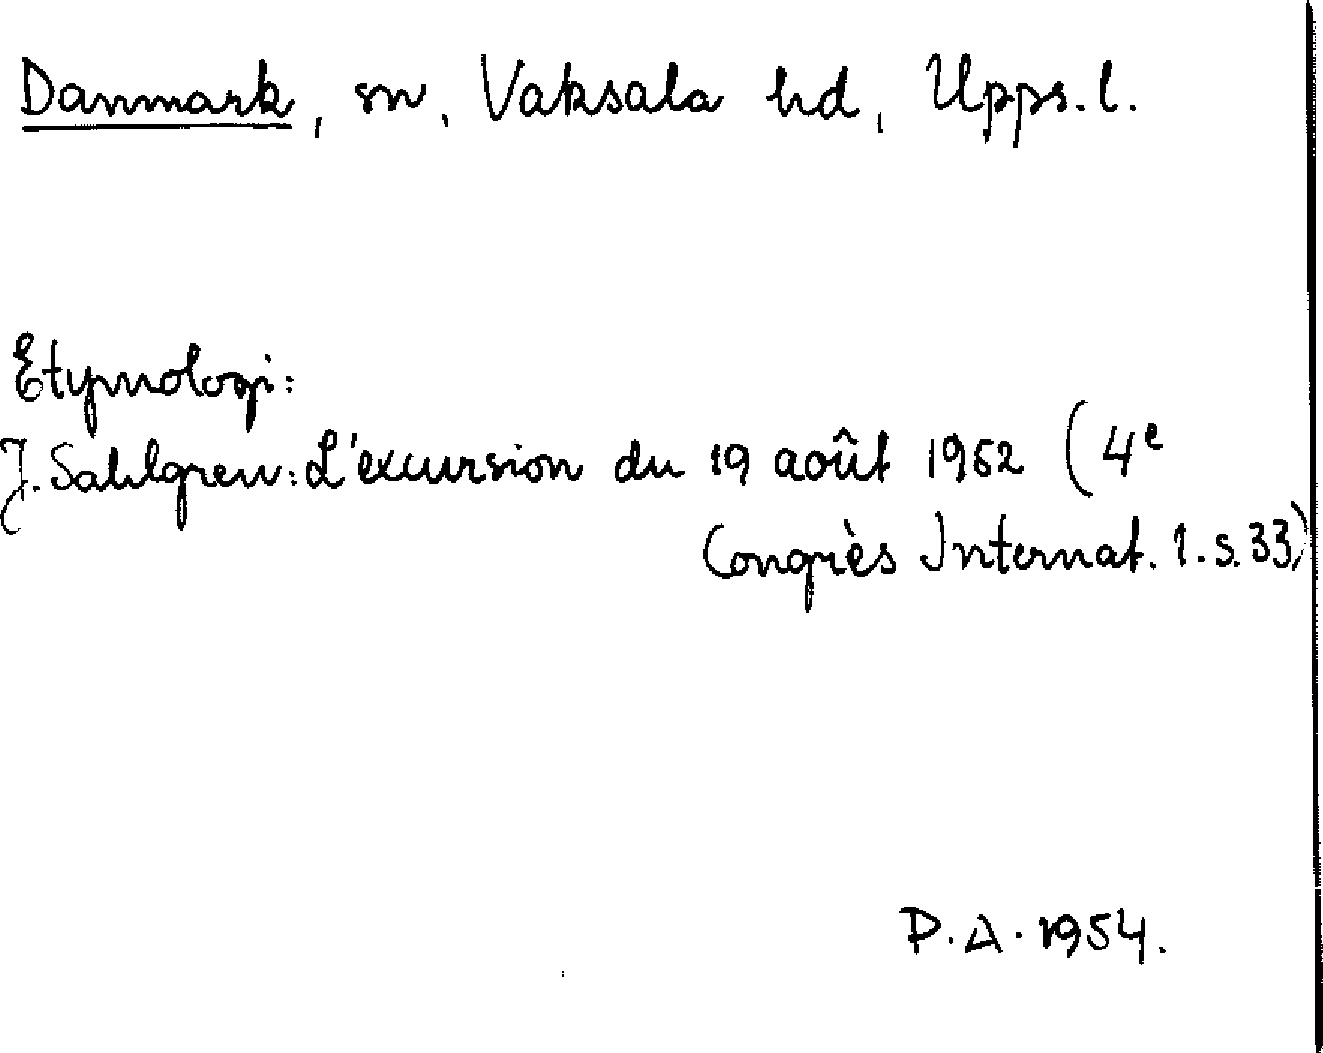 Danmark, sn, Vaksala hd, Upps. l.
Etymologi:
J. Sahlgren: L'excursion du 19 août 1952 (4e
Congrès Internat. 1. s. 33)
P. A. 1954.